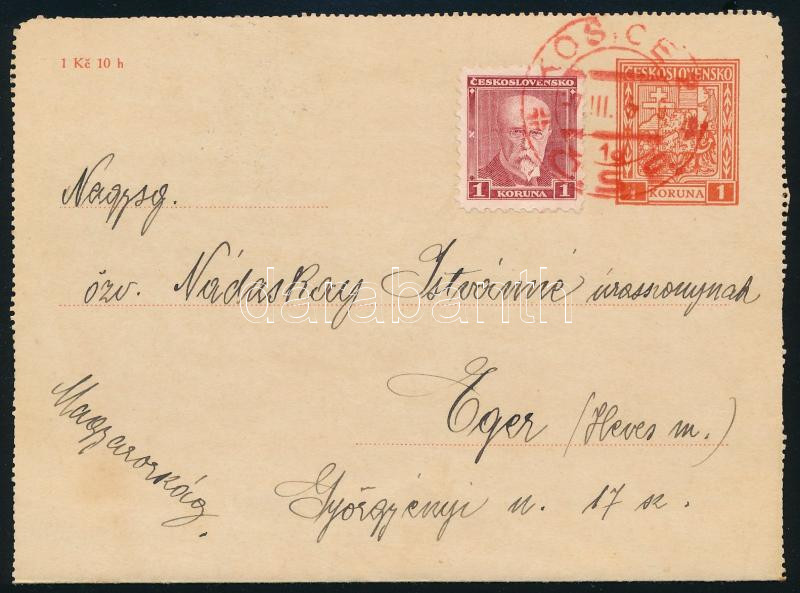 1 Kč 10 h
KOŠICE
ČESKOSLOVENSKO
1 KORUNA 1
ČESKOSLOVENSKO
KORUNA 1
Nagysg.
özv. Nádaskay Istvánné úrasszonynak
darabanth
Eger (Heves m.)
Magyarország.
u. 17 sz.